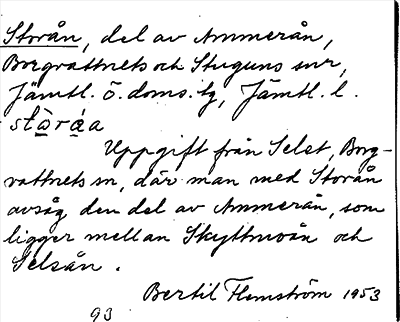 Storån, del av Ammerån,
Borgvattnets och Stuguns snr,
Jämtl. ö. doms. tg, Jämtl. l.
stòråa
Uppgift från Selet, Borg-
vattnets sn, där man med Storån
avsåg den del av Ammerån, som
ligger mellan Skyttmoån och
Selsån.
Bertil Flemström 1953
93